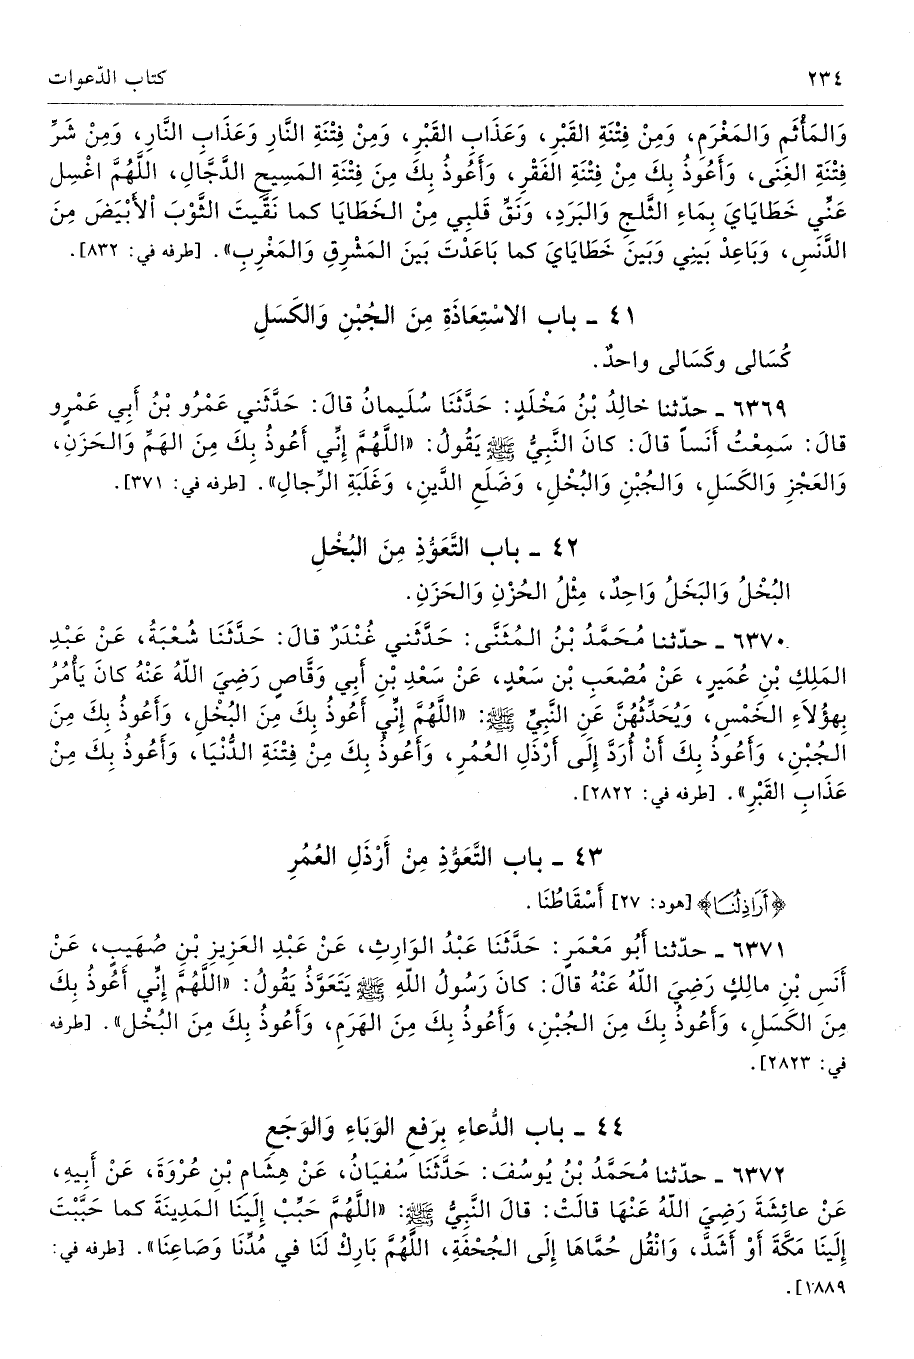 ٢٣٤ كتاب الدّعوات
وَالمَأْثَمِ وَالمَغْرَمِ، وَمِنْ فِتْنَةِ القَبْرِ، وَعَذَابِ القَبْرِ، وَمِنْ فِتْنَةِ النَّارِ وَعَذَابِ النَّارِ، وَمِنْ شَرِّ
فِتْنَةِ الغِنَى، وَأَعُوذُ بِكَ مِنْ فِتْنَةِ الفَقْرِ، وَأَعُوذُ بِكَ مِنَ فِتْنَةِ المَسِيحِ الدَّجَّالِ، اللَّهُمَّ اغْسِل
عَنِّي خَطَايَايَ بِمَاءِ الثَّلجِ وَالبَرَدِ، وَنَقِّ قَلبِي مِنْ الخَطَايَا كما نَقَّيتَ الثَّوْبَ الأَبْيَضَ مِنَ
الدَّنَسِ، وَبَاعِدْ بَينِي وَبَينَ خَطَايَايَ كما بَاعَدْتَ بَينَ المَشْرِقِ وَالمَغْرِبِ». [طرفه في: ٨٣٢].
٤١ ـ باب الاسْتِعَاذَةِ مِنَ الجُبْنِ وَالكَسَلِ
كُسَالى وكَسَالى واحدٌ.
٦٣٦٩ ـ حدّثنا خالِدُ بْنُ مَخْلَدٍ: حَدَّثَنَا سُلَيمانُ قالَ: حَدَّثَني عَمْرُو بْنُ أَبِي عَمْرٍو
قالَ: سَمِعْتُ أَنَساً قالَ: كانَ النَّبيُّ ﷺ يَقُولُ: «اللَّهُمَّ إِنِّي أَعُوذُ بِكَ مِنَ الهَمِّ وَالحَزَنِ،
وَالعَجْزِ وَالكَسَلِ، وَالجُبْنِ وَالبُخْلِ، وَضَلَعِ الدَّينِ، وَغَلَبَةِ الرِّجالِ». [طرفه في: ٣٧١].
٤٢ ـ باب التَّعَوُّذِ مِنَ البُخْلِ
البُخْلُ وَالبَخَلُ وَاحِدٌ، مِثْلُ الحُزْنِ وَالحَزَنِ.
٦٣٧٠ ـ حدّثنا مُحَمَّدُ بْنُ المُثَنَّى: حَدَّثَني غُنْدَرٌ قالَ: حَدَّثَنَا شُعْبَةُ، عَنْ عَبْدِ
المَلِكِ بْنِ عُمَيرٍ، عَنْ مُصْعَبِ بْنِ سَعْدٍ، عَنْ سَعْدِ بْنِ أَبِي وَقَّاصٍ رَضِيَ اللّهُ عَنْهُ كانَ يَأْمُرُ
بِهؤُلاَءِ الخَمْسِ، وَيُحَدِّثُهُنَّ عَنِ النَّبيِّ ﷺ: «اللَّهُمَّ إِنِّي أَعُوذُ بِكَ مِنَ البُخْلِ، وَأَعُوذُ بِكَ مِنَ
الجُبْنِ، وَأَعُوذُ بِكَ أَنْ أُرَدَّ إِلَى أَرْذَلِ العُمُرِ، وَأَعُوذُ بِكَ مِنْ فِتْنَةِ الدُّنْيَا، وَأَعُوذُ بِكَ مِنْ
عَذَابِ القَبْرِ». [طرفه في: ٢٨٢٢].
٤٣ ـ باب التَّعَوُّذِ مِنْ أَرْذَلِ العُمُرِ
﴿أَرَاذِلُنَا﴾ [هود: ٢٧] أَسْقَاطُنَا.
٦٣٧١ ـ حدّثنا أَبُو مَعْمَرٍ: حَدَّثَنَا عَبْدُ الوَارِثِ، عَنْ عَبْدِ العَزِيزِ بْنِ صُهَيبٍ، عَنْ
أَنَسِ بْنِ مالِكٍ رَضِيَ اللّهُ عَنْهُ قالَ: كانَ رَسُولُ اللّهِ ﷺ يَتَعَوَّذُ يَقُولُ: «اللَّهُمَّ إِنِّي أَعُوذُ بِكَ
مِنَ الكَسَلِ، وَأَعُوذُ بِكَ مِنَ الجُبْنِ، وَأَعُوذُ بِكَ مِنَ الهَرَمِ، وَأَعُوذُ بِكَ مِنَ البُخْلِ». [طرفه
في: ٢٨٢٣].
٤٤ ـ باب الدُّعاءِ بِرَفعِ الوَبَاءِ وَالوَجَعِ
٦٣٧٢ ـ حدّثنا مُحَمَّدُ بْنُ يُوسُفَ: حَدَّثَنَا سُفيَانُ، عَنْ هِشَامِ بْنِ عُرْوَةَ، عَنْ أَبِيهِ،
عَنْ عائِشَةَ رَضِيَ اللّهُ عَنْهَا قالَتْ: قالَ النَّبيُّ ﷺ: «اللَّهُمَّ حَبِّبْ إِلَينَا المَدِينَةَ كما حَبَّبْتَ
إِلَينَا مَكَّةَ أَوْ أَشَدَّ، وَانْقُل حُمَّاهَا إِلَى الجُحْفَةِ، اللَّهُمَّ بَارِكْ لَنَا في مُدِّنَا وَصَاعِنَا». [طرفه في:
١٨٨٩].